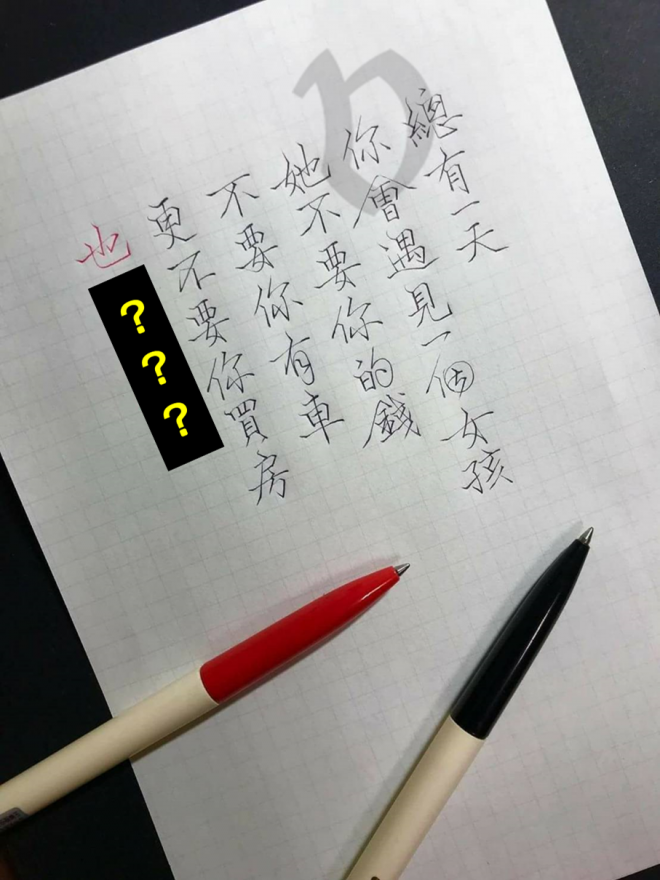 總有一天
你會遇見一個女孩
她不要你的錢
不要你有車
更不要你買房
也???